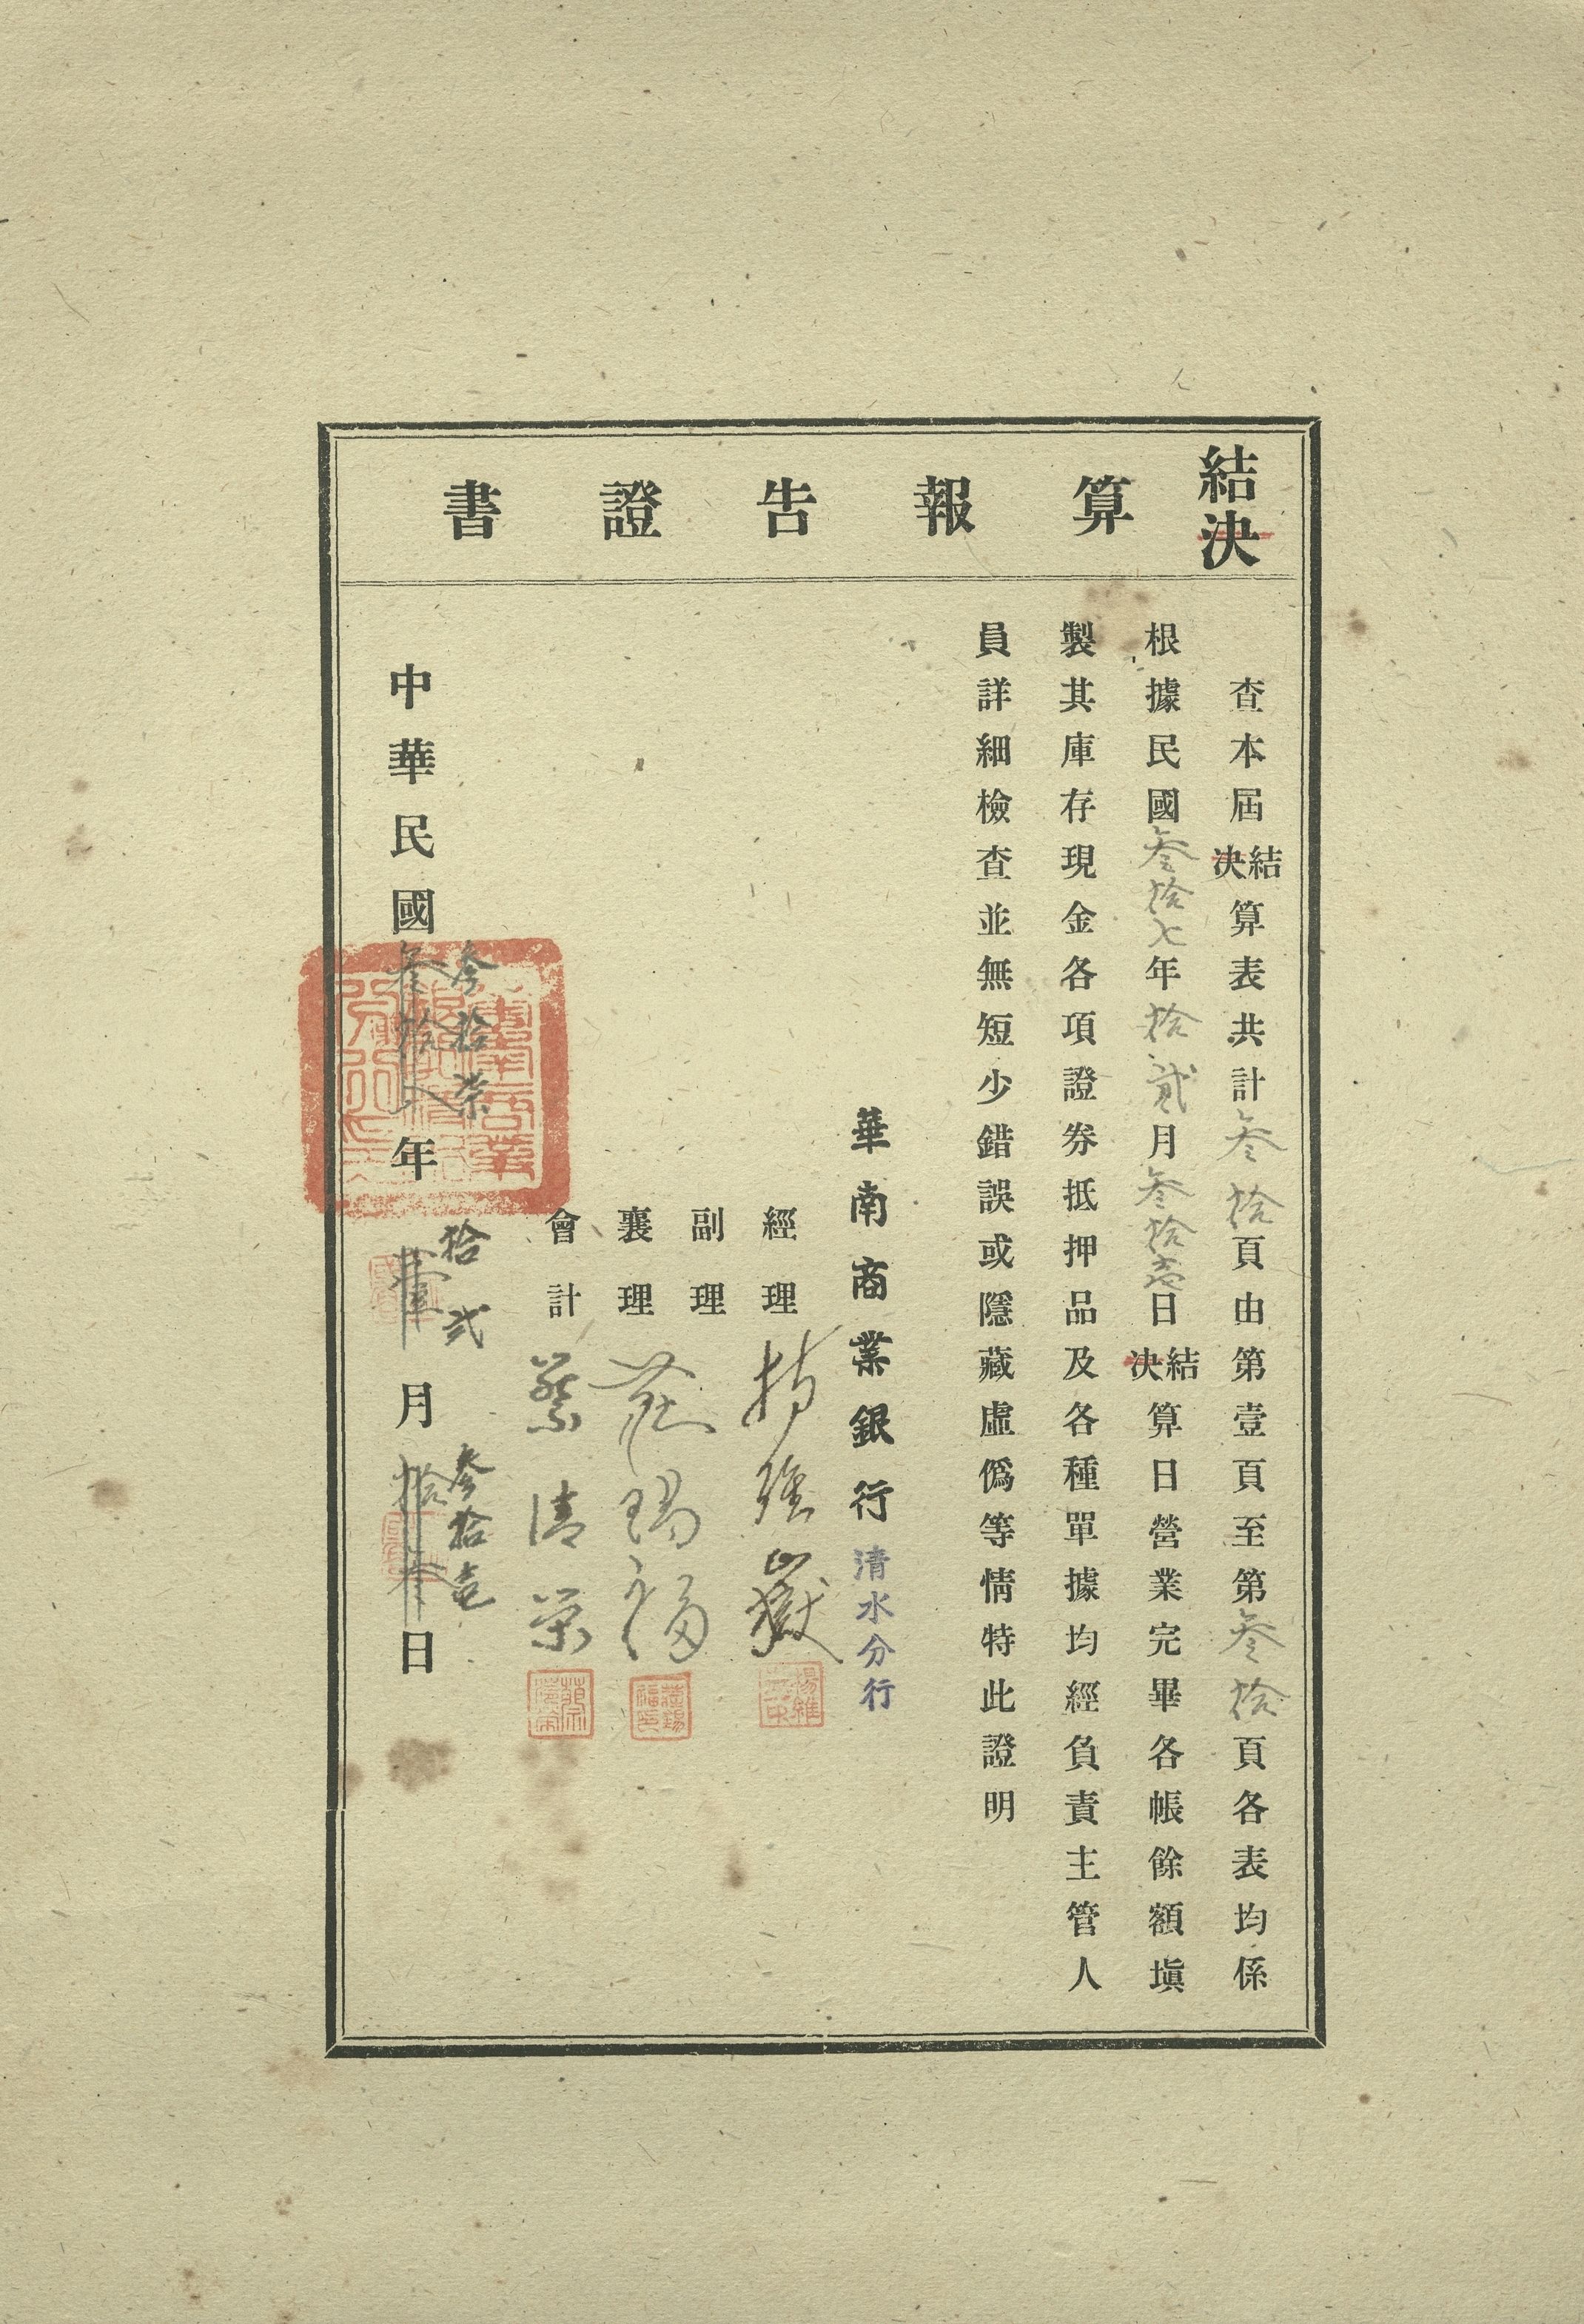 結決算報告證書
查本屆結決算表共計叁拾頁由第壹頁至第叁拾頁各表均係
根據民國叁拾七年拾貳月叁拾壱日結決算日營業完畢各帳餘額塡
製其庫存現金各項證券抵押品及各種單據均經負責主管人
員詳細檢查並無短少錯誤或隱藏虛僞等情特此證明
華南商業銀行清水分行
經理
副理
襄理 莊錫福
會計 蔡清榮
中華民國叁拾八年壹月拾叁日
叁拾柒 拾弍 叁拾壱